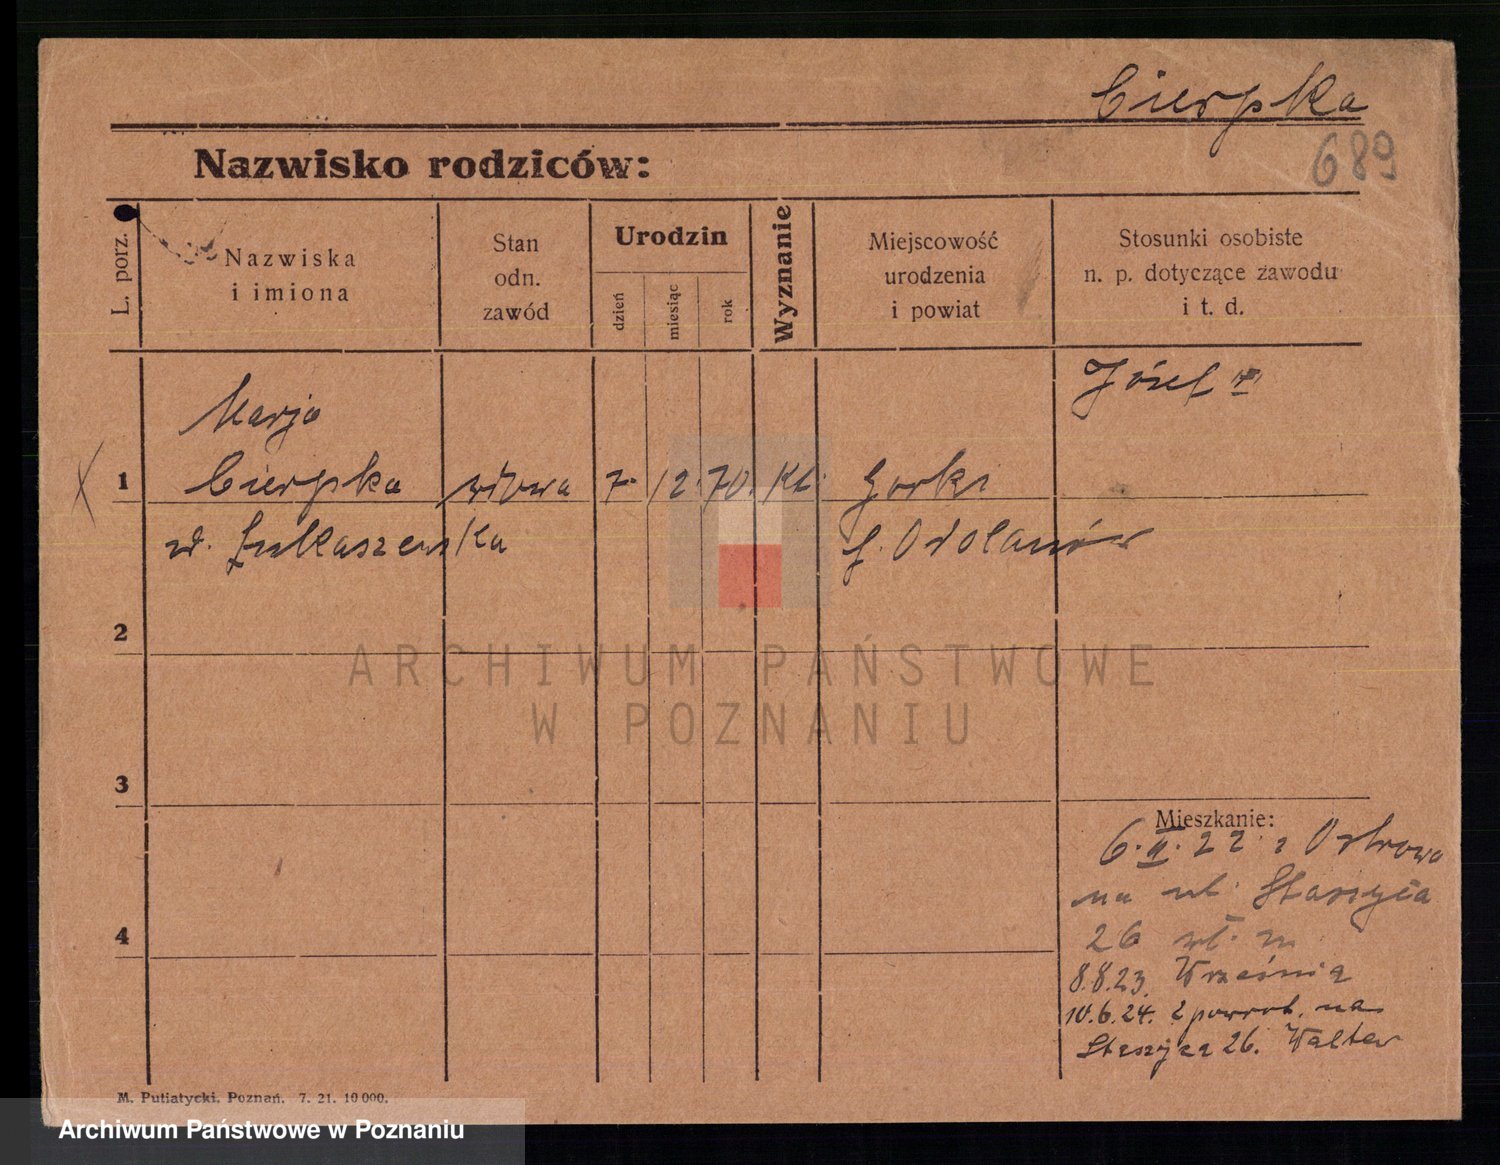 Cierpka
689
Nazwisko rodziców:
L. porz.
Nazwiska
i imiona
Stan
odn.
zawód
Urodzin
dzień
miesiąc
rok
Wyznanie
Miejscowość
urodzenia
i powiat
Stosunki osobiste
n. p. dotyczące zawodu
i t. d.
Józef
Marja
1 Cierpka wdowa 7. 12. 70. Kt. Gorki
Łukaszewska Odolanów
2
3
4
Mieszkanie:
6.II.22 z Ostrowa
na ul. Staszyca
26
8.8.23. Września
10.6.24. z powrot. na
Staszyca 26. Walter
M. Putiatycki, Poznań. 7. 21. 10000.
ARCHIWUM PAŃSTWOWE
W POZNANIU
Archiwum Państwowe w Poznaniu